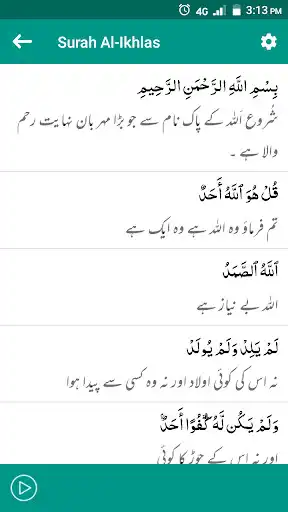 4G 3:13 PM
Surah Al-Ikhlas
بِسْمِ اللَّهِ الرَّحْمَنِ الرَّحِيمِ
شُروع اَللہ کے پاک نام سے جو بڑا مہربان نہایت رحم
والا ہے ۔
قُلْ هُوَ ٱللَّهُ أَحَدٌ
تم فرماؤ وہ اللہ ہے وہ ایک ہے
ٱللَّهُ ٱلصَّمَدُ
اللہ بے نیاز ہے
لَمْ يَلِدْ وَلَمْ يُولَدْ
نہ اس کی کوئی اولاد اور نہ وہ کسی سے پیدا ہوا
وَلَمْ يَكُن لَّهُ كُفُوًا أَحَدٌ
اور نہ اس کے جوڑ کا کوئی